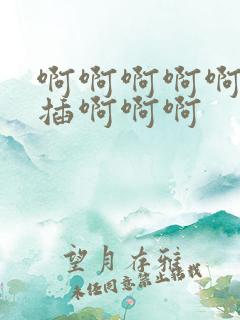 啊啊啊啊啊
插啊啊啊
望月存雅
未经同意禁止转载